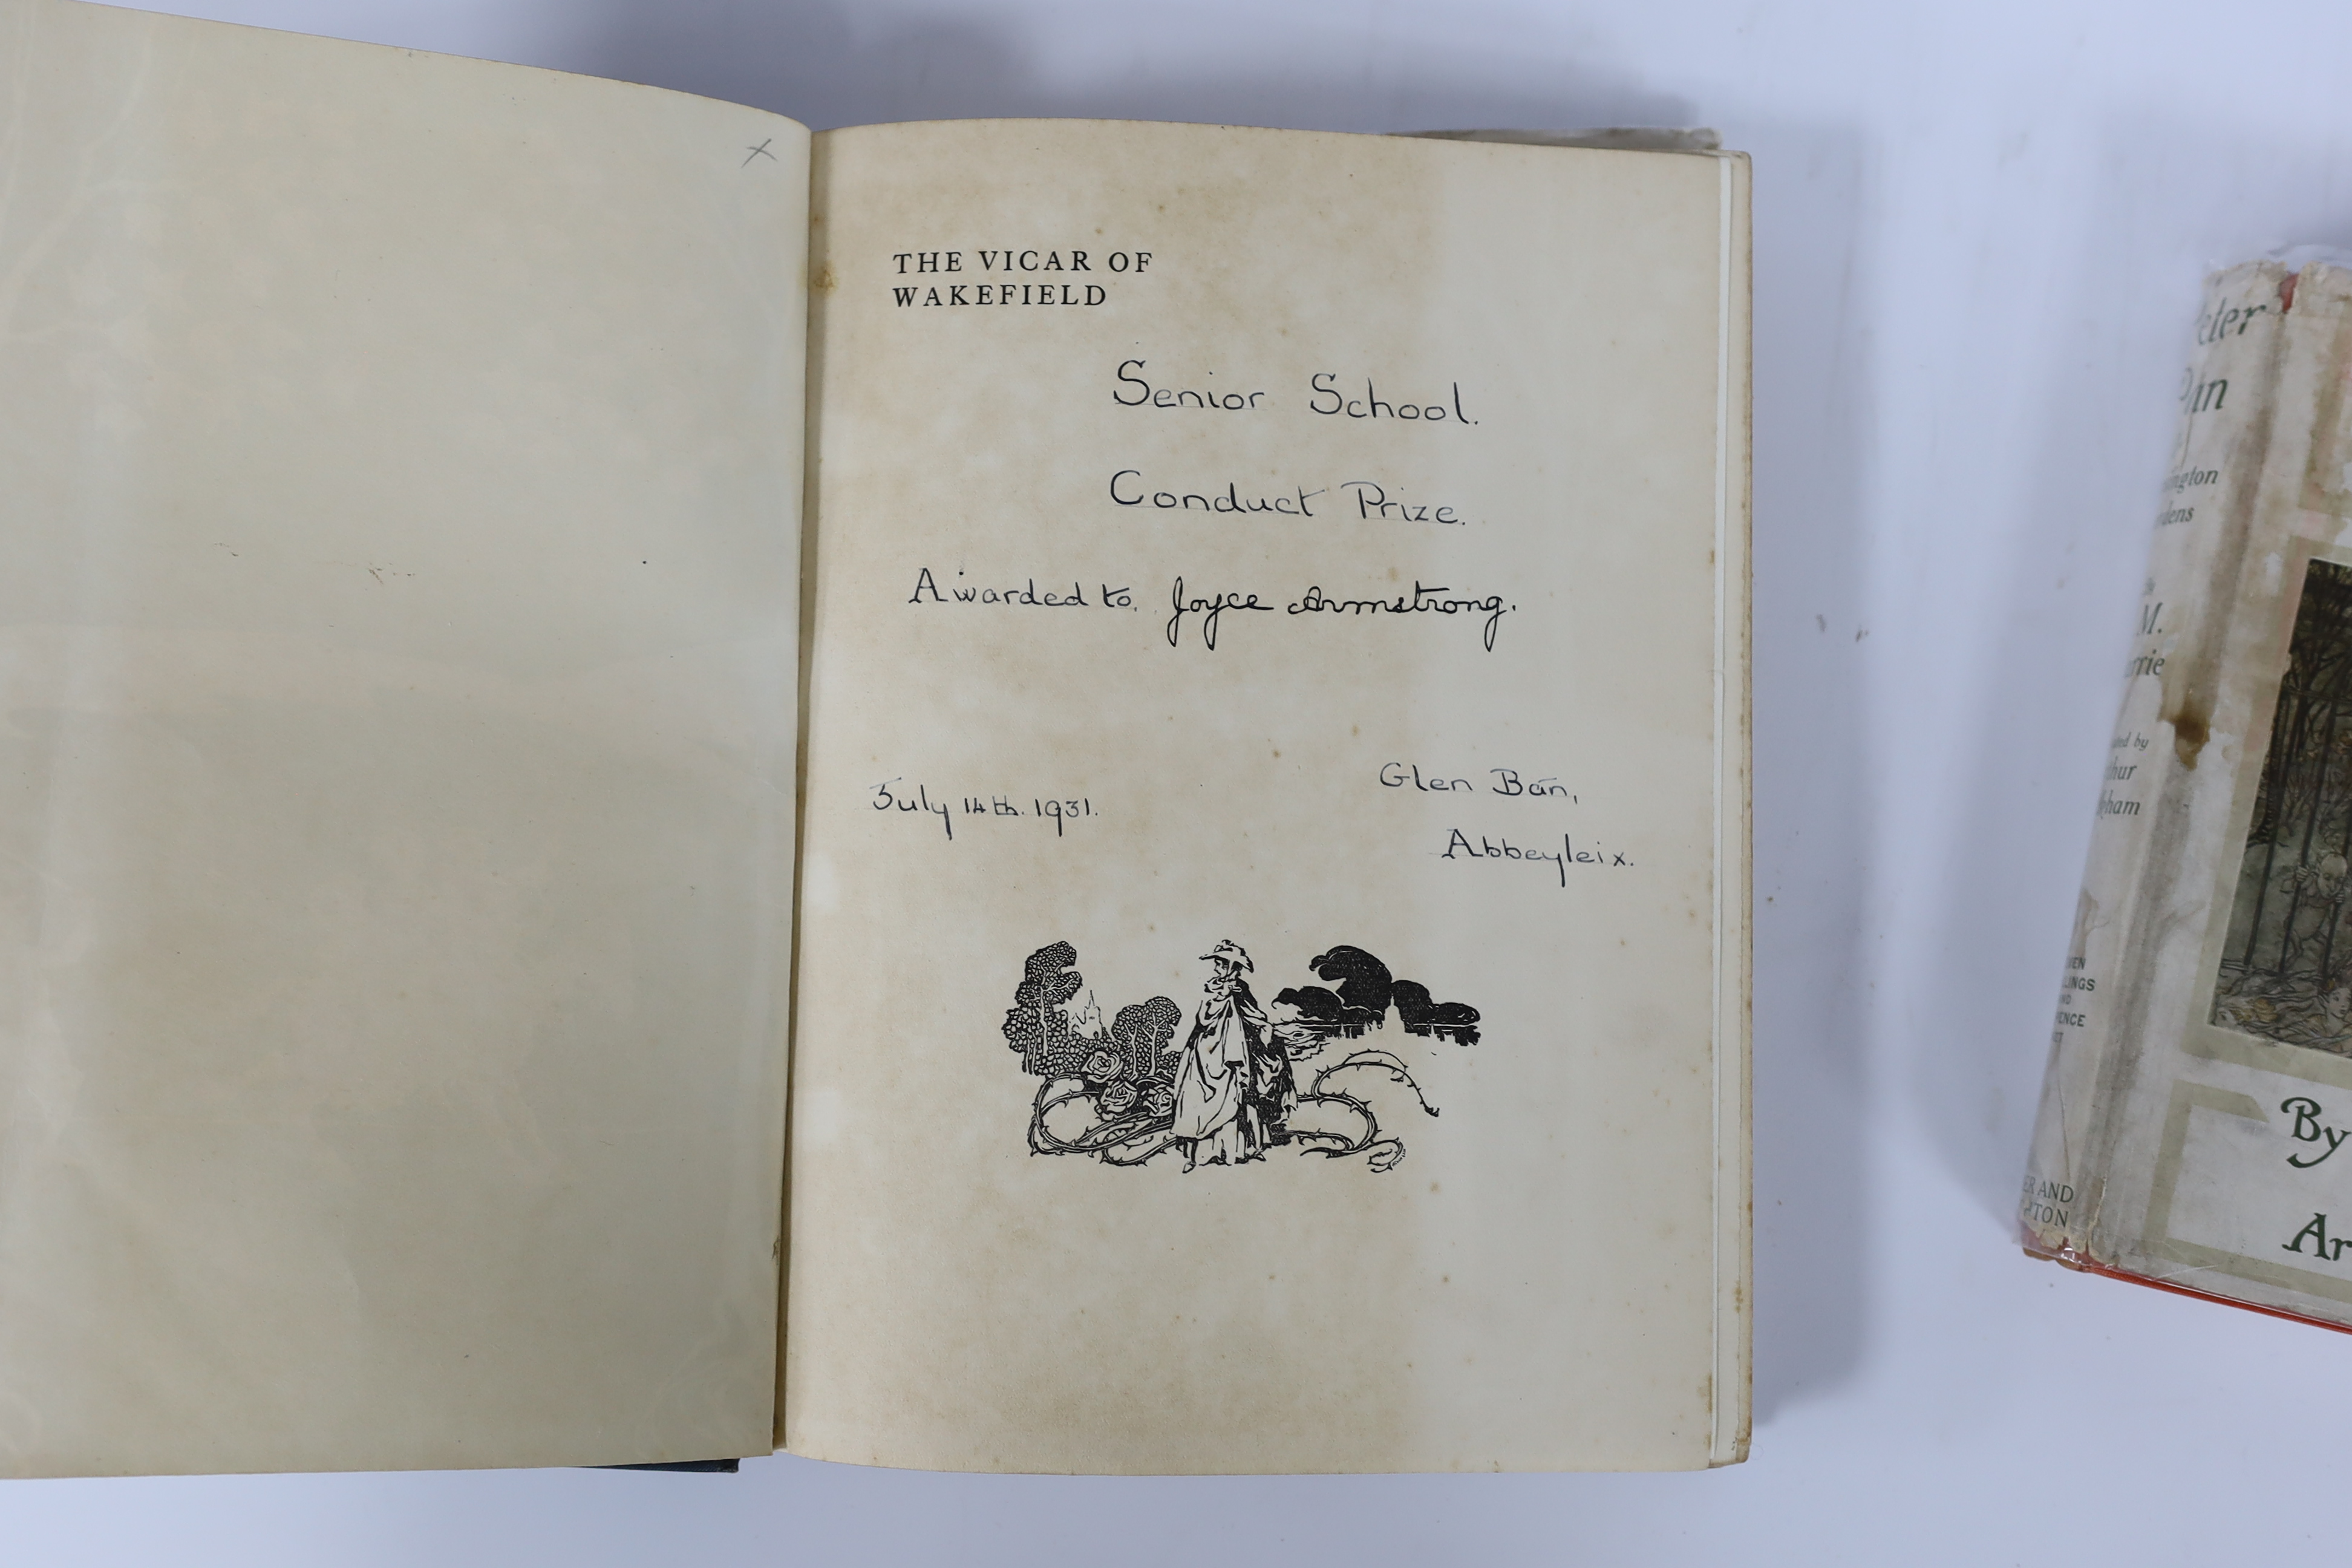 THE VICAR OF
WAKEFIELD
Senior School.
Conduct Prize.
Awarded to. Joyce Armstrong.
July 14th. 1931.
Glen Bán,
Abbeyleix.
eter
Pan
ington
dens
M.
rrie
ted by
hur
kham
VEN
LLINGS
ND
ENCE
ER AND
GHTON
By
Ar